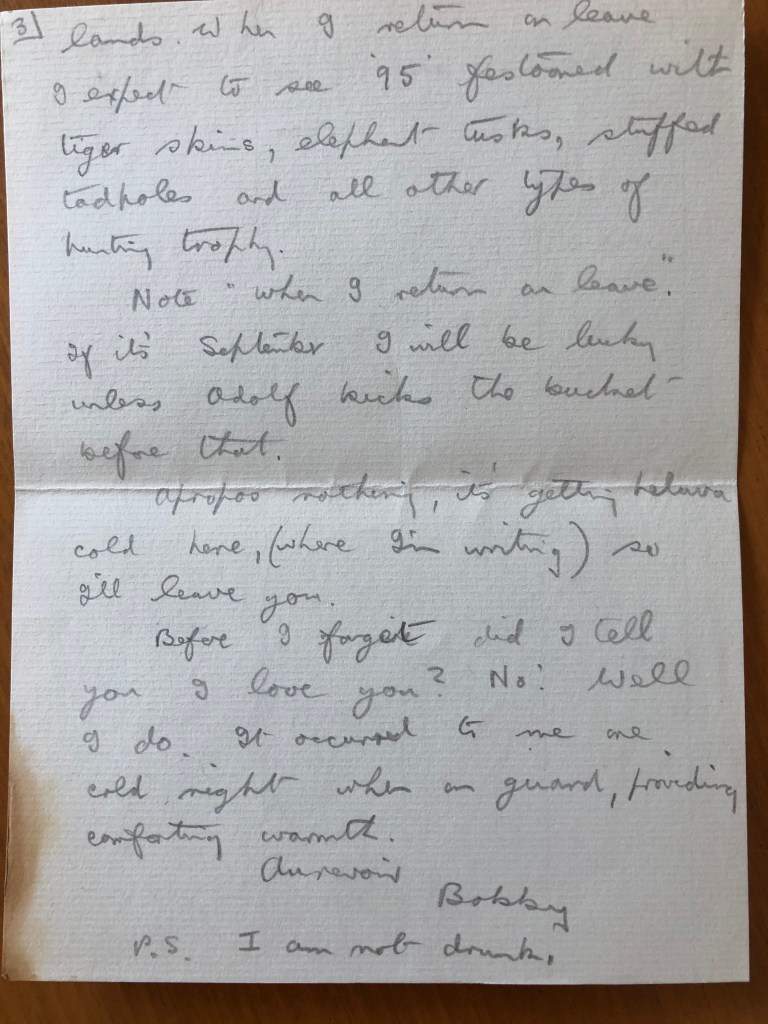 3) lands. When I return on leave
I expect to see '95' festooned with
tiger skins, elephant tusks, stuffed
tadpoles and all other types of
hunting trophy.
Note "when I return on leave".
If it's September I will be lucky
unless Adolf kicks the bucket
before that.
Apropos nothing, it's getting heluva
cold here, (where I'm writing) so
I'll leave you.
Before I forget did I tell
you I love you? No! Well
I do. It occurred to me one
cold night when on guard, providing
comforting warmth.
Aurevoir
Bobby
P.S. I am not drunk.